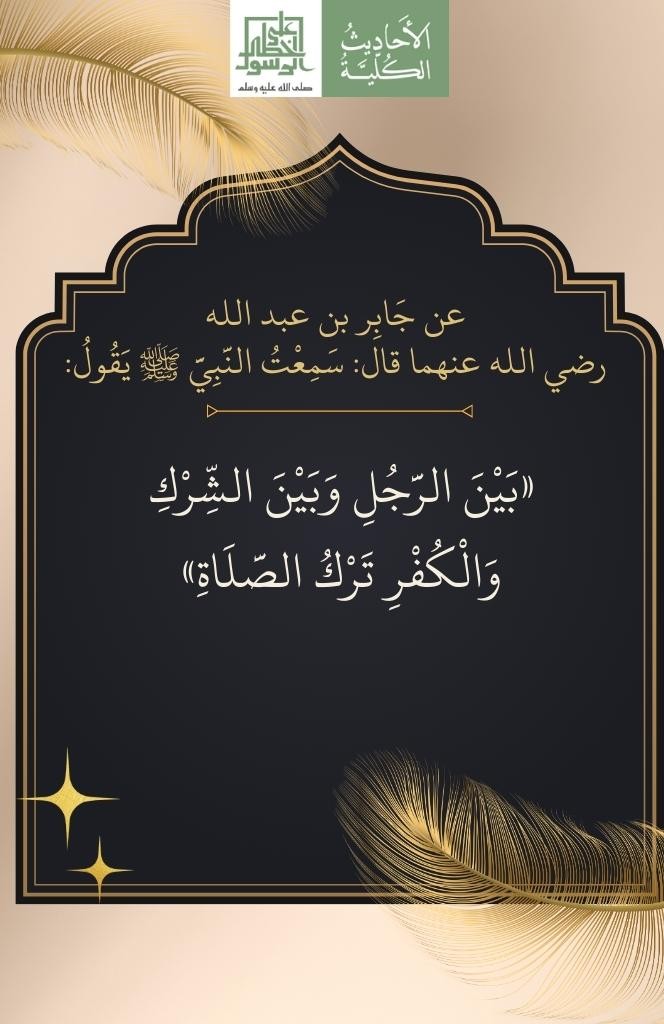 الأَحَادِيثُ
الكُلِّيَّةُ
على خطى الرسول
صلى الله عليه وسلم
عن جَابِر بن عبد الله
رضي الله عنهما قال: سَمِعْتُ النّبِيّ ﷺ يَقُولُ:
«بَيْنَ الرّجُلِ وَبَيْنَ الشِّرْكِ
وَالْكُفْرِ تَرْكُ الصّلَاةِ»